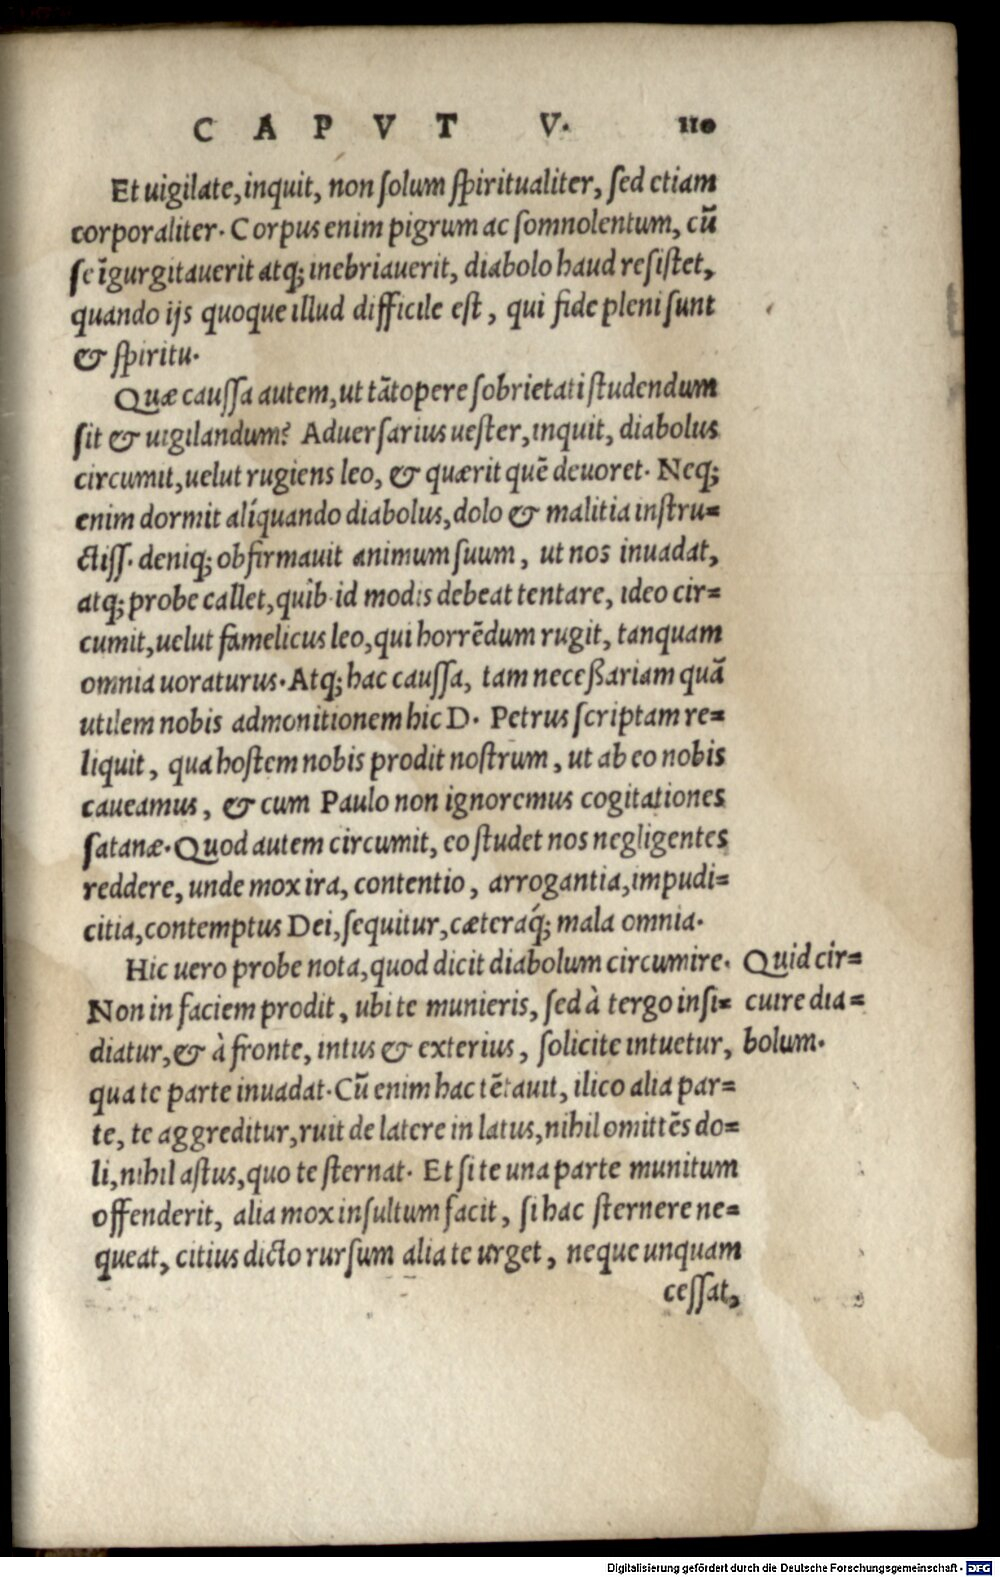 CAPVT V. 110
Et uigilate, inquit, non ſolum ſpiritualiter, ſed etiam
corporaliter. Corpus enim pigrum ac ſomnolentum, cũ
ſe ĩgurgitauerit atq; inebriauerit, diabolo haud reſiſtet,
quando ijs quoque illud difficile eſt, qui fide pleni ſunt
& ſpiritu.
Quæ cauſſa autem, ut tãtopere ſobrietati ſtudendum
ſit & uigilandum? Aduerſarius ueſter, inquit, diabolus
circumit, uelut rugiens leo, & quærit quẽ deuoret. Neq;
enim dormit alíquando diabolus, dolo & malitia inſtru=
ctiſſ. deniq; obfirmauit animum ſuum, ut nos inuadat,
atq; probe callet, quib. id modis debeat tentare, ideo cir=
cumit, uelut famelicus leo, qui horrẽdum rugit, tanquam
omnia uoraturus. Atq; hac cauſſa, tam neceßariam quã
utilem nobis admonitionem hic D. Petrus ſcriptam re=
liquit, qua hoſtem nobis prodit noſtrum, ut ab eo nobis
caueamus, & cum Paulo non ignoremus cogitationes
ſatanæ. Quod autem circumit, eo ſtudet nos negligentes
reddere, unde mox ira, contentio, arrogantia, impudi=
citia, contemptus Dei, ſequitur, cæteraq́; mala omnia.
Hic uero probe nota, quod dicit diabolum circumire. Quid cir=
Non in faciem prodit, ubi te munieris, ſed à tergo inſi= cuire dia=
diatur, & à fronte, intus & exterius, ſolicite intuetur, bolum.
qua te parte inuadat. Cũ enim hac tẽtauit, ilico alia par=
te, te aggreditur, ruit de latere in latus, nihil omittẽs do=
li, nihil aſtus, quo te ſternat. Et ſi te una parte munitum
offenderit, alia mox inſultum facit, ſi hac ſternere ne=
queat, citius dicto rurſum alia te urget, neque unquam
ceſſat,
Digitalisierung gefördert durch die Deutsche Forschungsgemeinschaft - DFG